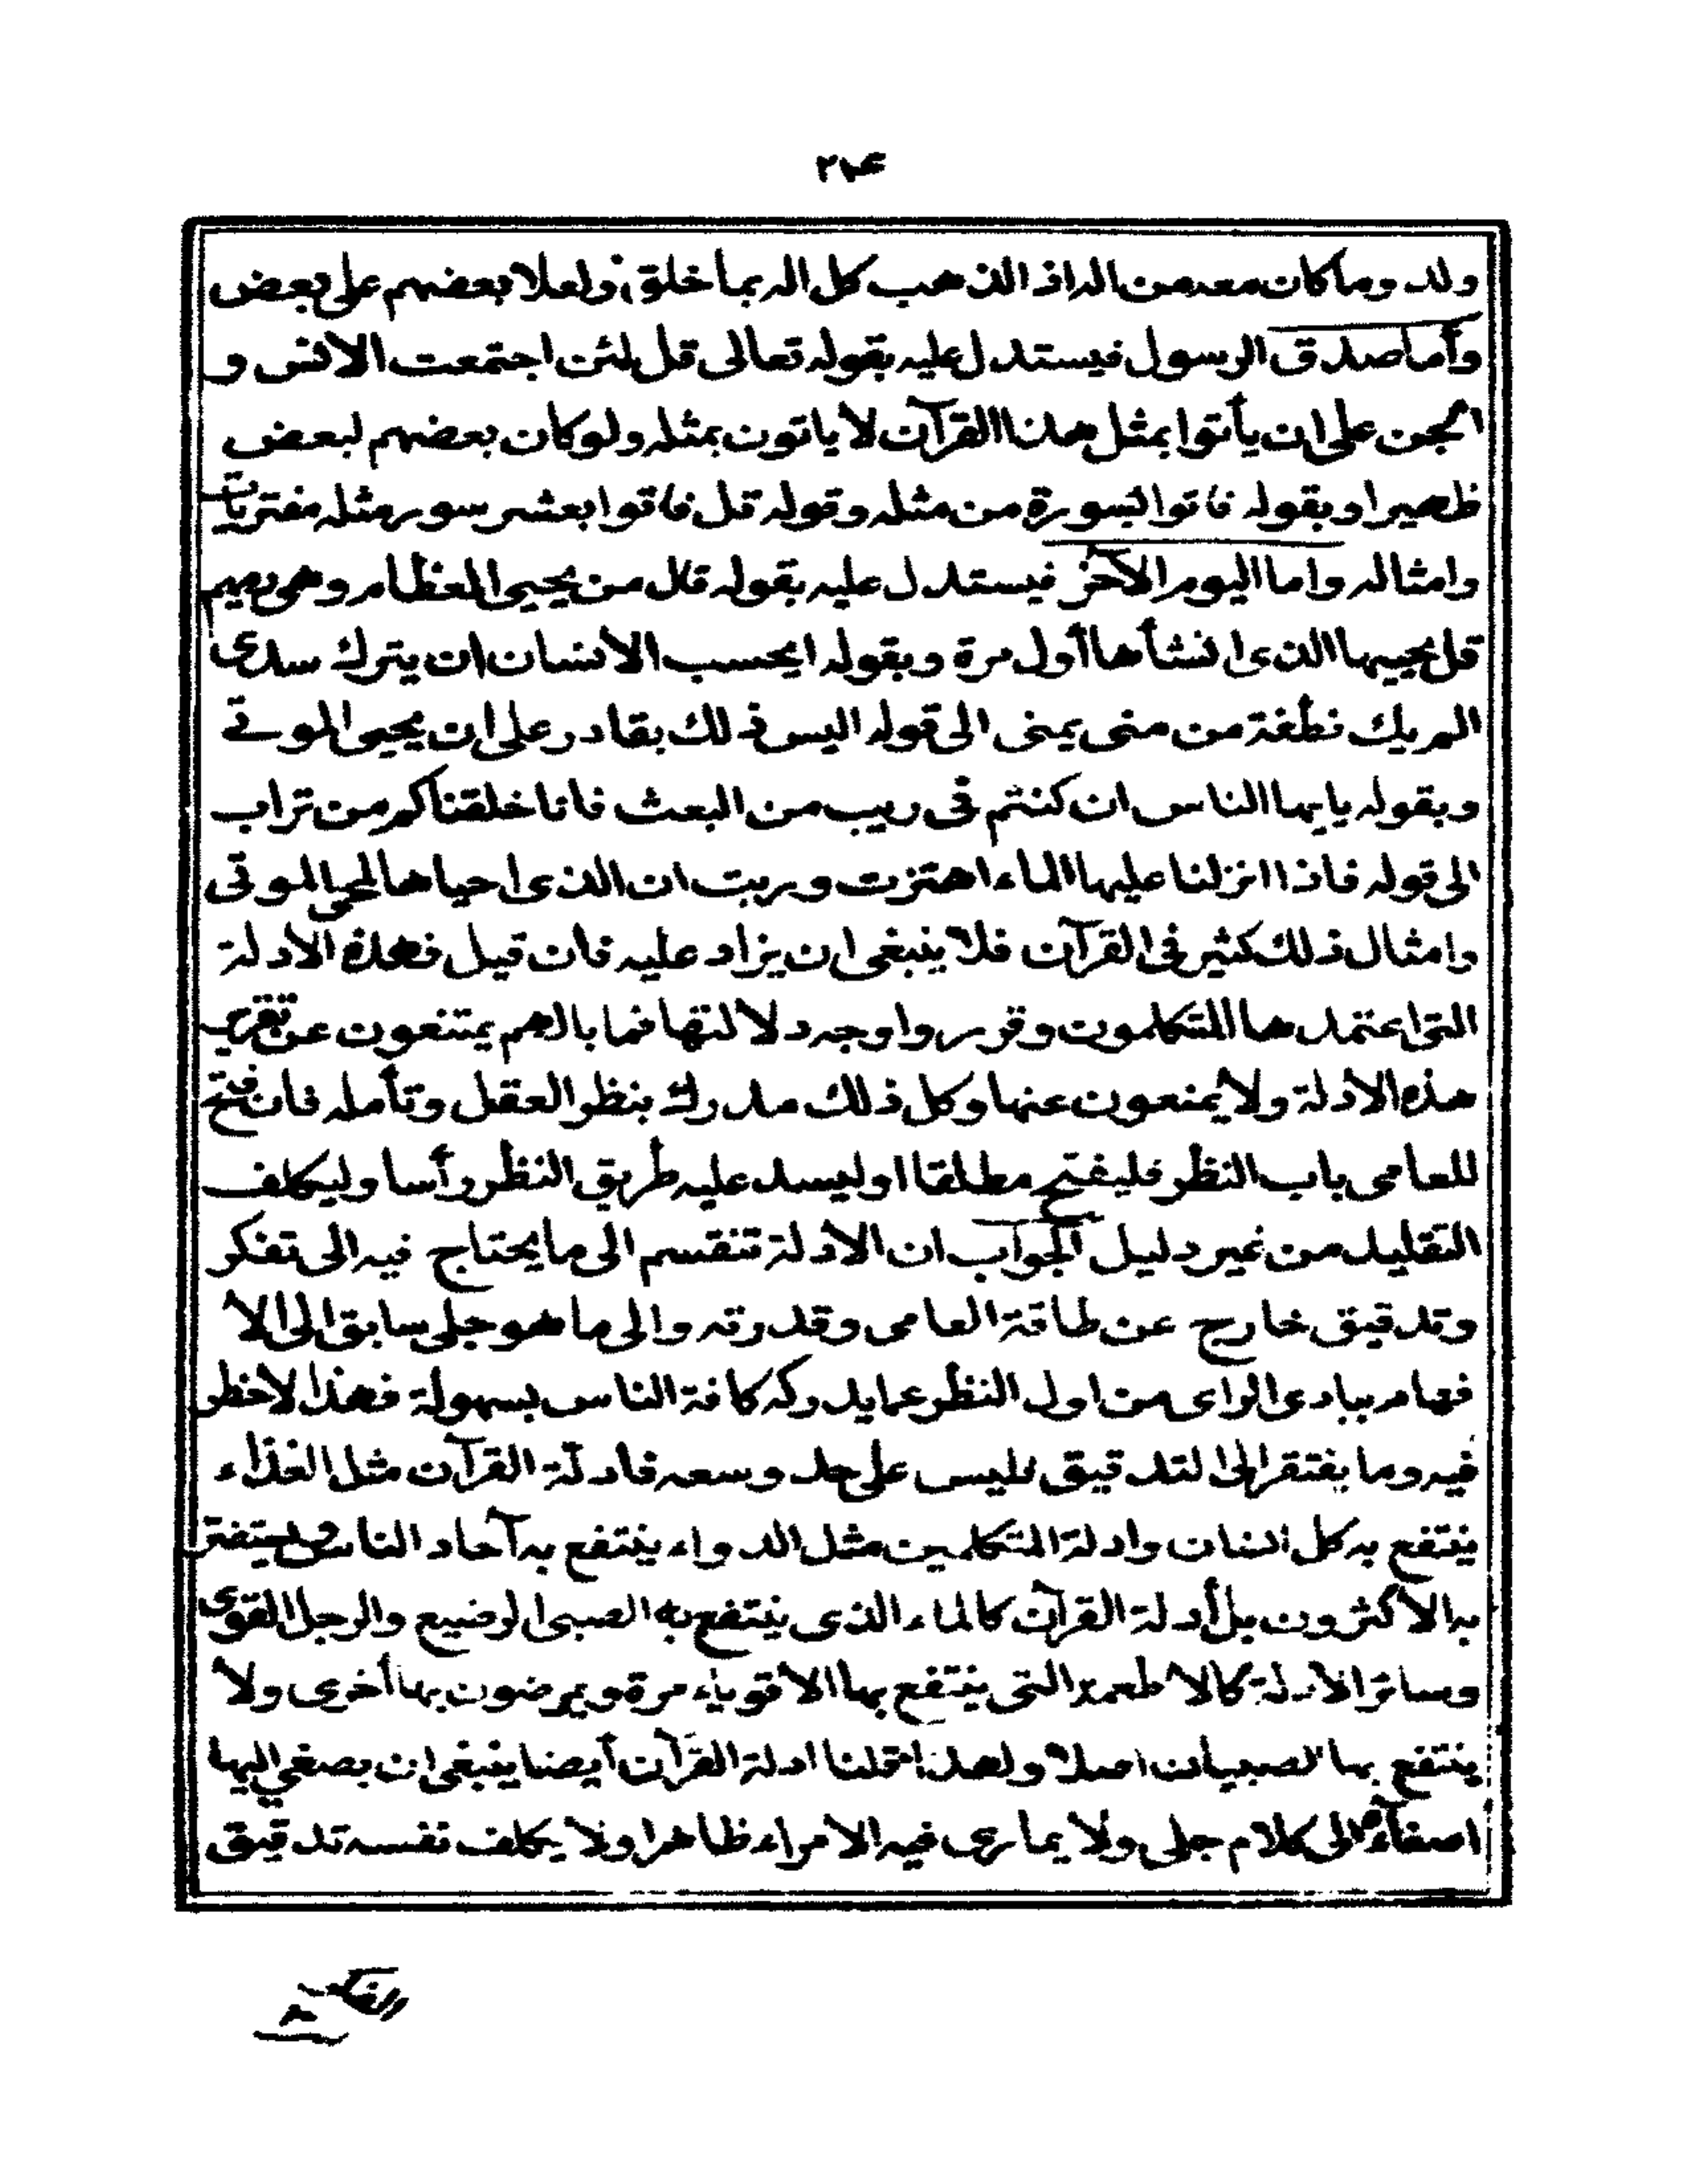 ٢٧٤
ولد وما كان معه من اله اذ الذهب كل اله بما خلق ولعلا بعضهم على بعض
وأما صدق الرسول فيستدل عليه بقوله تعالى قل لئن اجتمعت الانس و
الجن على ان يأتوا بمثل هذا القرآن لا ياتون بمثله ولو كان بعضهم لبعض
ظهيرا وبقوله فاتوا بسورة من مثله وقوله قل فاتوا بعشر سور مثله مفتريات
وامثاله واما اليوم الآخر فيستدل عليه بقوله قال من يحيى العظام وهى رميم
قل يحييها الذى انشأها أول مرة وبقوله ايحسب الأنسان ان يترك سدى
الم يك نطفة من منى يمنى الى قوله اليس ذلك بقادر على ان يحيى الموتى
وبقوله يايها الناس ان كنتم فى ريب من البعث فانا خلقناكم من تراب
الى قوله فاذا انزلنا عليها الماء اهتزت وربت ان الذى احياها لمحى الموتى
وامثال ذلك كثير فى القرآن فلا ينبغى ان يزاد عليه فان قيل فهذه الأدلة
التى اعتمدها المتكلمون وقرروا وجه دلالتها فما بالهم يمتنعون عن تقرير
هذه الأدلة ولا يمنعون عنها وكل ذلك مدرك بنظر العقل وتأمله فان فتح
للعامى باب النظر فليفتح مطلقا او ليسد عليه طريق النظر رأسا وليكلف
التقليد من غير دليل الجواب ان الأدلة تنقسم الى ما يحتاج فيه الى تفكر
وتدقيق خارج عن طاقة العامى وقدرته والى ما هو جلى سابق الى الا
فهام ببادى الراى من اول النظر عما يدركه كافة الناس بسهولة فهذا لا خطر
فيه وما يفتقر الى التدقيق فليس على حد وسعه فادلة القرآن مثل الغذاء
ينتفع به كل انسان وادلة المتكلمين مثل الدواء ينتفع به آحاد الناس ويستضر
به الأكثرون بل أدلة القرآن كالماء الذى ينتفع به الصبى الرضيع والرجل القوى
وسائر الأدلة كالاطعمة التى ينتفع بها الأقوياء مرة ويمرضون بها أخرى ولا
ينتفع بها الصبيان اصلا ولهذا قلنا ادلة القرآن أيضا ينبغى ان يصغي اليها
اصغاءه الى كلام جلى ولا يمارى فيه الا مراء ظاهرا ولا يكلف نفسه تدقيق